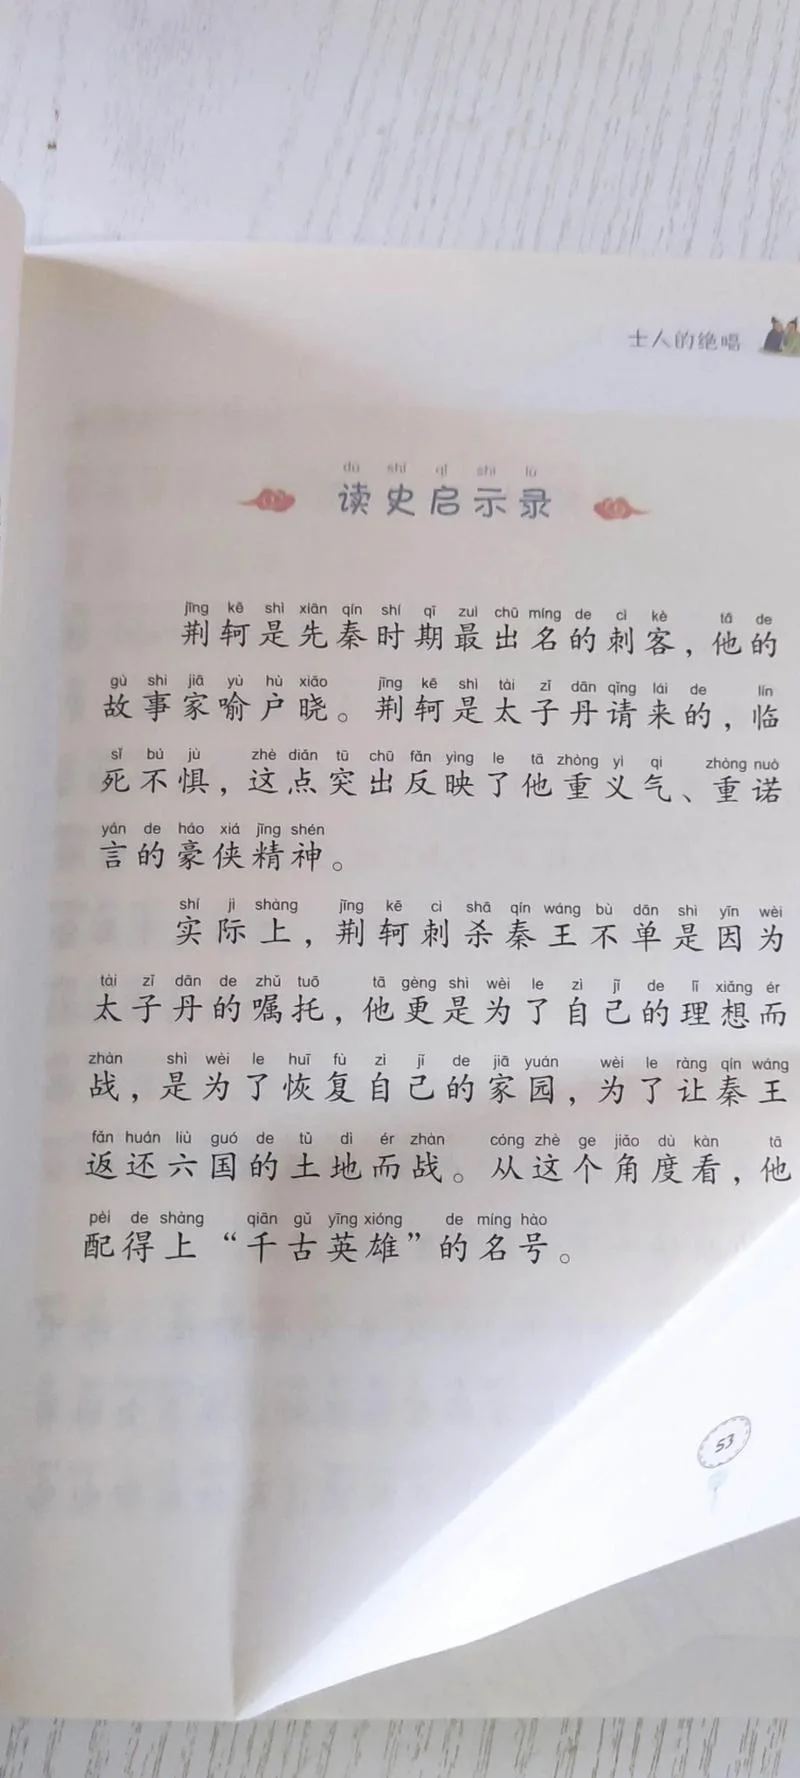 士人的绝唱
dú shǐ qǐ shì lù
读史启示录
jīng kē shì xiān qín shí qī zuì chū míng de cì kè tā de
荆轲是先秦时期最出名的刺客，他的
gù shi jiā yù hù xiǎo jīng kē shì tài zǐ dān qǐng lái de lín
故事家喻户晓。荆轲是太子丹请来的，临
sǐ bú jù zhè diǎn tū chū fǎn yìng le tā zhòng yì qì zhòng nuò
死不惧，这点突出反映了他重义气、重诺
yán de háo xiá jīng shén
言的豪侠精神。
shí jì shàng jīng kē cì shā qín wáng bù dān shì yīn wèi
实际上，荆轲刺杀秦王不单是因为
tài zǐ dān de zhǔ tuō tā gèng shì wèi le zì jǐ de lǐ xiǎng ér
太子丹的嘱托，他更是为了自己的理想而
zhàn shì wèi le huī fù zì jǐ de jiā yuán wèi le ràng qín wáng
战，是为了恢复自己的家园，为了让秦王
fǎn huán liù guó de tǔ dì ér zhàn cóng zhè ge jiǎo dù kàn tā
返还六国的土地而战。从这个角度看，他
pèi de shàng qiān gǔ yīng xióng de míng hào
配得上“千古英雄”的名号。
53